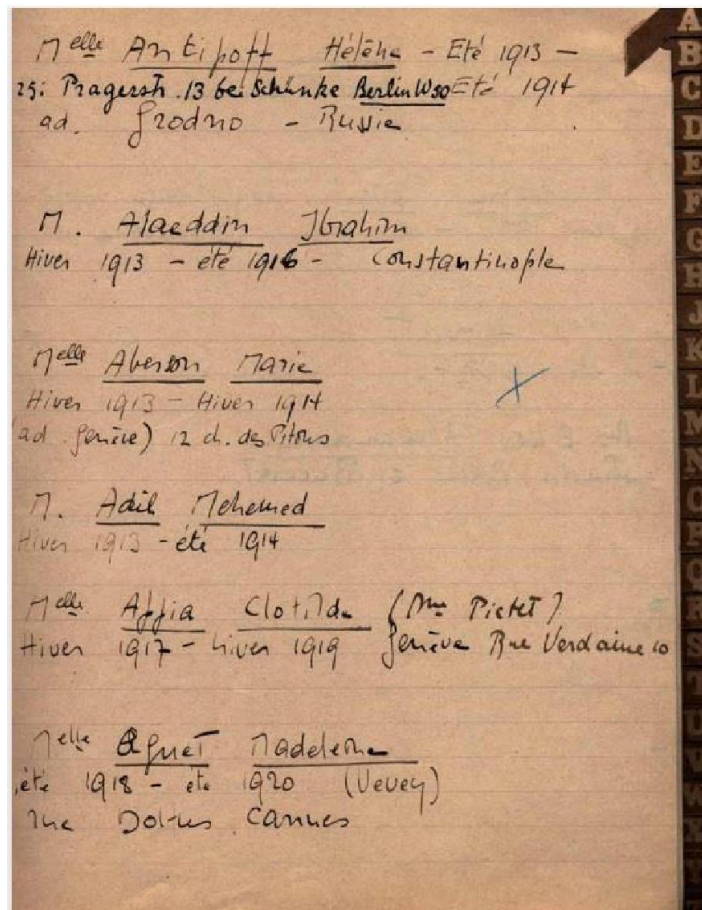 Melle Antipoff Hélène - Eté 1913 -
25: Pragerstr. 13 bei Schünke Berlin W50 Eté 1914
ad. Grodno - Russie
M. Alaeddin Ibrahim
Hiver 1913 - été 1916 - Constantinople
Melle Aberson Marie
Hiver 1913 - Hiver 1914
(ad. Genève) 12 ch. des Pitons
M. Adil Mehemed
Hiver 1913 - été 1914
Melle Affia Clotilde (Mme Pictet)
Hiver 1917 - hiver 1919 Genève Rue Verdaine 10
Melle Aguet Madeleine
été 1918 - été 1920 (Vevey)
Cannes
A
B
C
D
E
F
G
H
J
K
L
M
N
O
P
Q
R
S
T
U
V
W
X